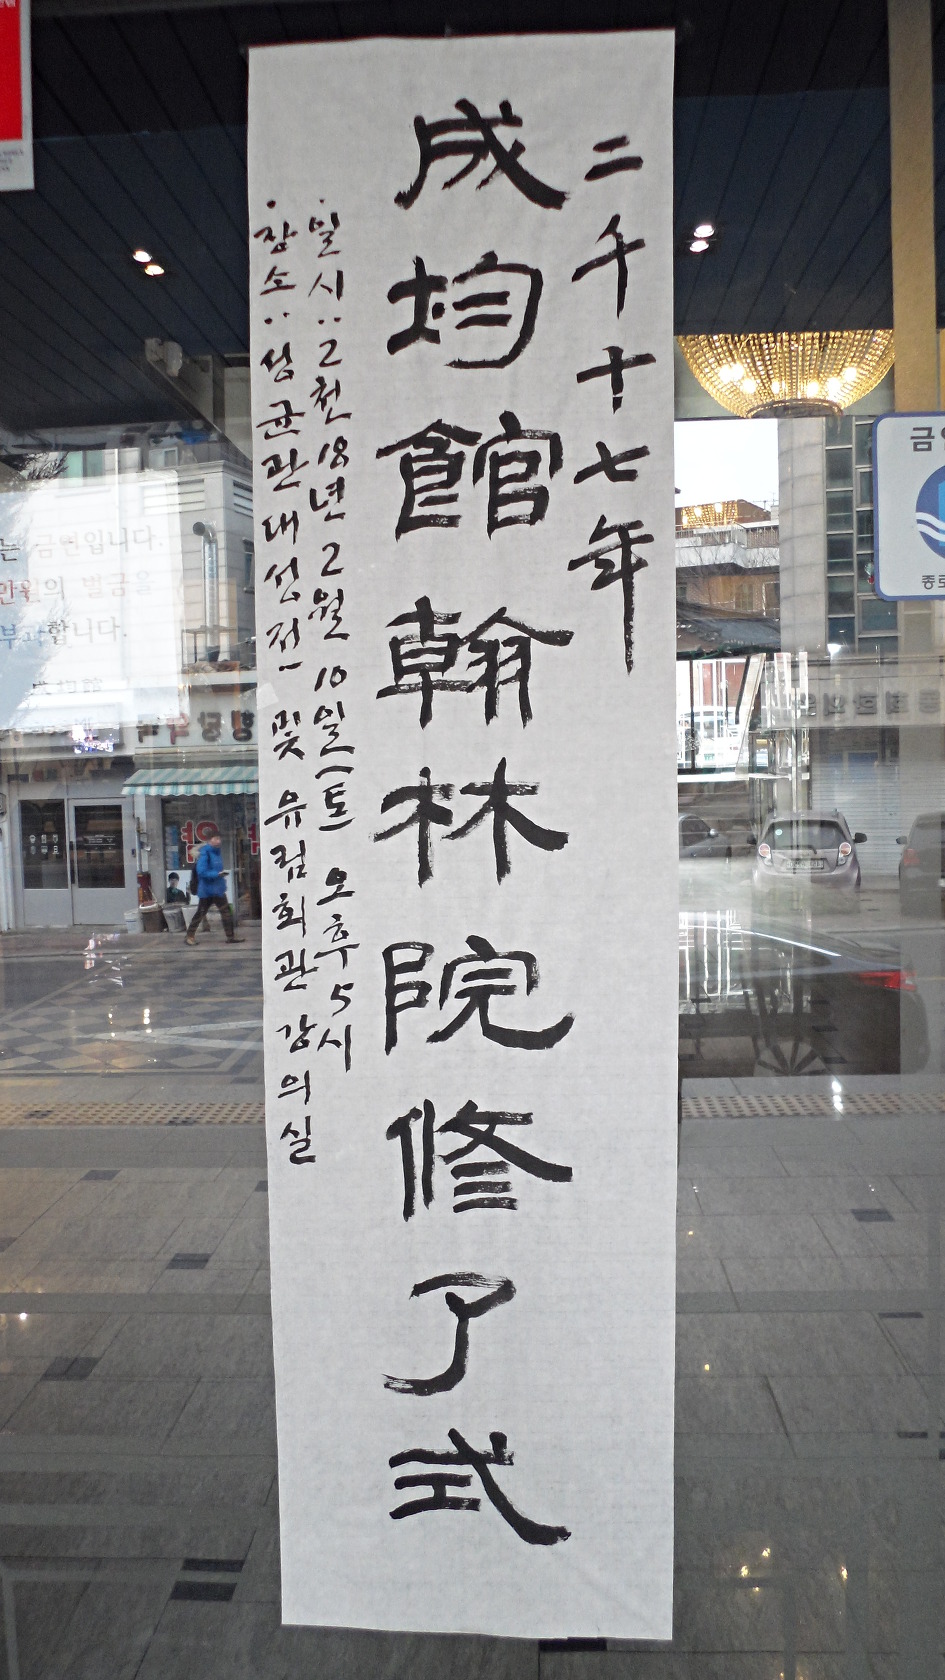 二千十七年
成均館翰林院修了式
·일시:2천18년 2월 10일(토) 오후 5시
·장소:성균관 대성전 및 유림회관 강의실
금연
종로
는 금연입니다.
만원의 벌금을
부과합니다.